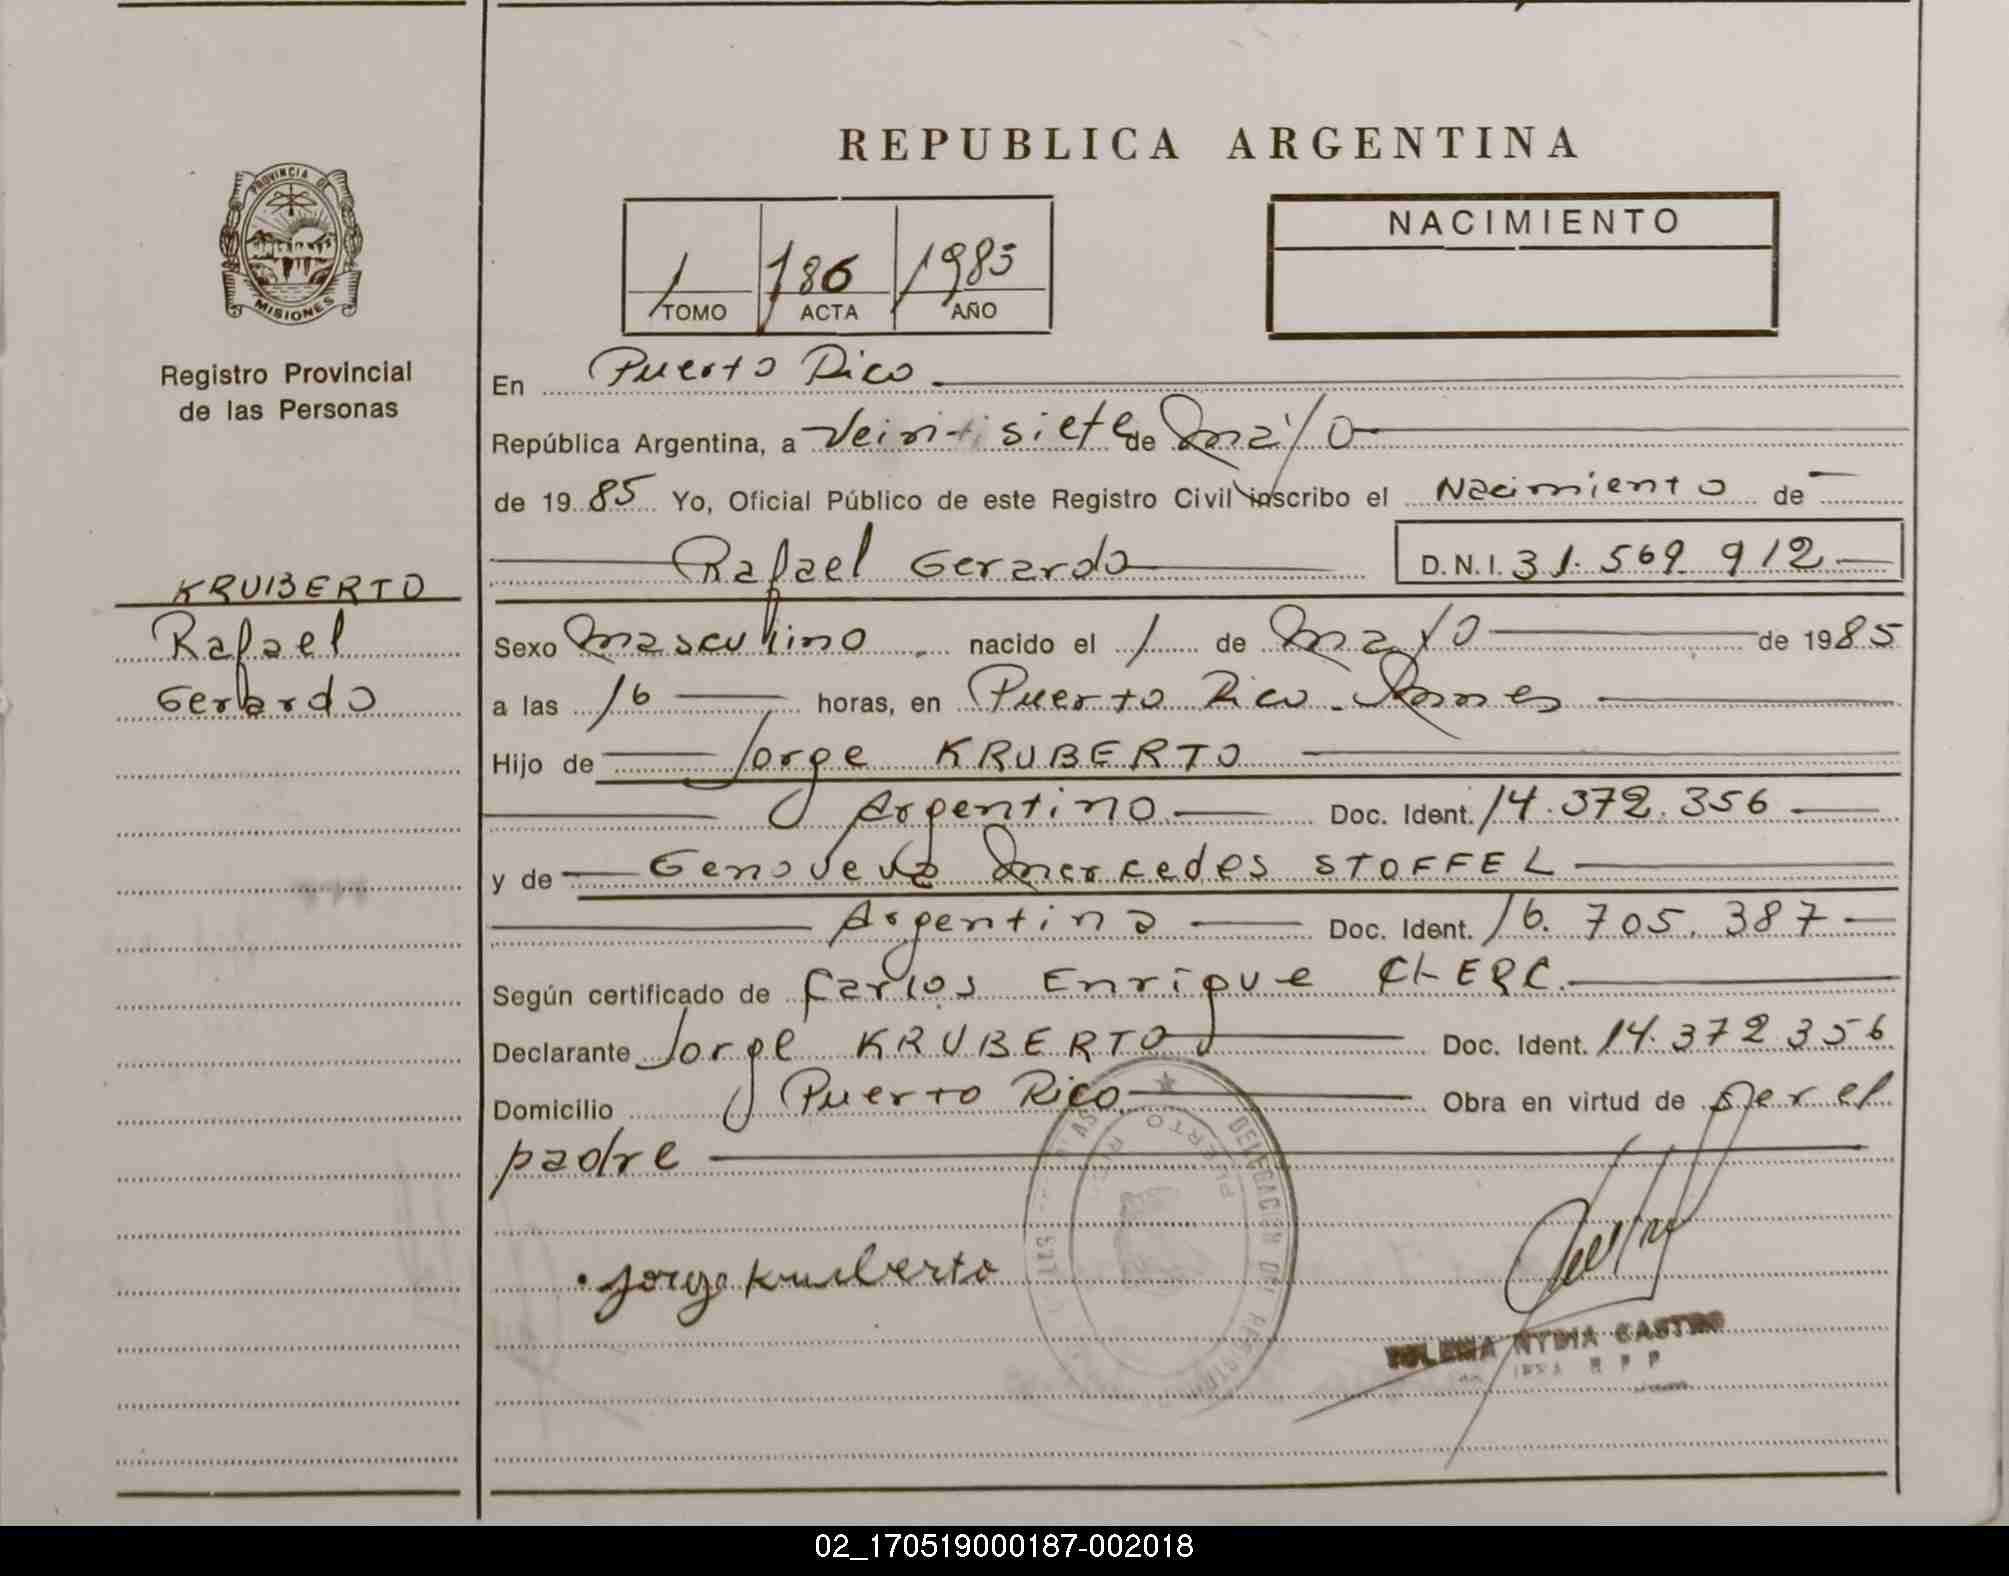 PROVINCIA DE
MISIONES
Registro Provincial
de las Personas
KRUBERTO
Rafael
Gerardo
REPUBLICA ARGENTINA
1 186 1985
TOMO ACTA AÑO
NACIMIENTO
En Puerto Rico
República Argentina, a Veintisiete de mayo
de 1985 Yo, Oficial Público de este Registro Civil inscribo el Nacimiento de
Rafael Gerardo D.N.I. 31.569.912
Sexo masculino nacido el 1 de mayo de 1985
a las 16 horas, en Puerto Rico. Mnes
Hijo de Jorge KRUBERTO
Argentino Doc. Ident. 14.372.356
y de Genoveva Mercedes STOFFEL
Argentina Doc. Ident. 16.705.387
Según certificado de Carlos Enrique CLERC.
Declarante Jorge KRUBERTO Doc. Ident. 14.372.356
Domicilio Puerto Rico Obra en virtud de ser el
padre
PUERTO RICO
Jorge Kruberto
NYDIA CASTRO
02_170519000187-002018